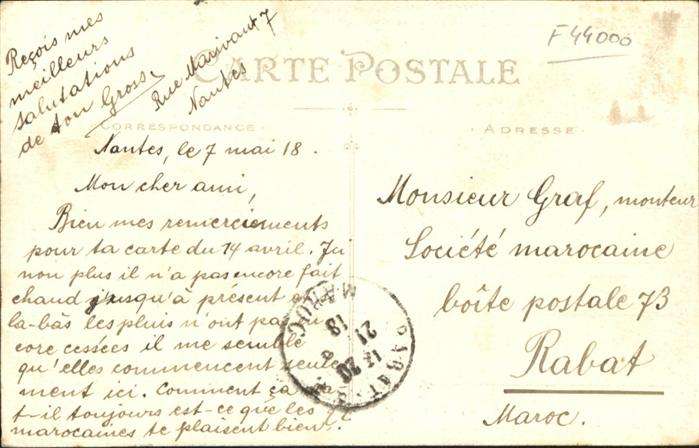 F 44000
CARTE POSTALE
CORRESPONDANCE
ADRESSE
Reçois mes
meilleurs
salutations
de ton Grosse
Rue Marivaux 7
Nantes
Nantes, le 7 mai 18.
Mon cher ami,
Bien mes remerciements
pour ta carte du 14 avril. Ici
non plus il n'a pas encore fait
chaud jusqu'à présent
la-bâs les pluis n'ont pas en
core cessées il me semble
qu'elles commencent seule
ment ici. Comment ça va
t-il toujours est-ce que les
marocaines te plaisent bien.
Monsieur Graf, monteur
Société marocaine
boîte postale 73
Rabat
Maroc.
RABAT
MAROC
20
21
18